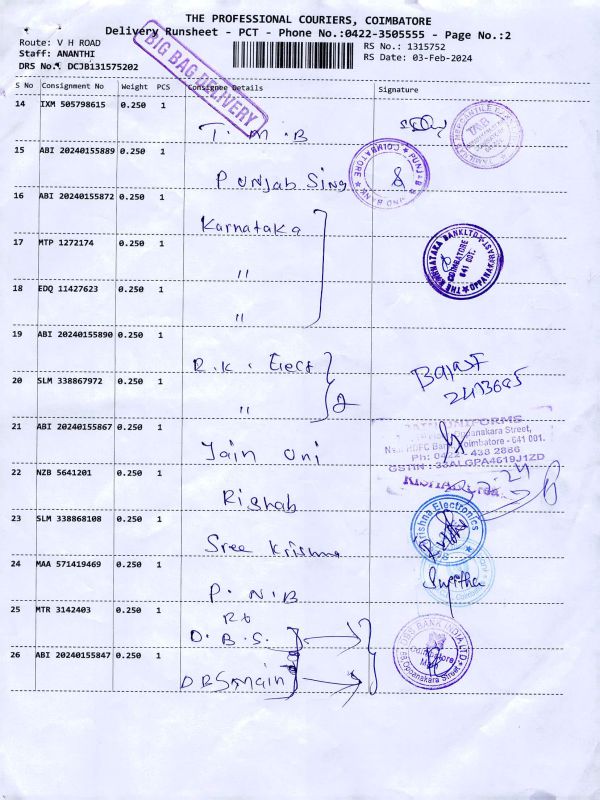 THE PROFESSIONAL COURIERS, COIMBATORE
Delivery Runsheet - PCT - Phone No.:0422-3505555 - Page No.:2
Route: V H ROAD
Staff: ANANTHI
DRS No.: DCJB131575202
RS No.: 1315752
RS Date: 03-Feb-2024
BIG BAG DELIVERY
S No Consignment No Weight PCS Consignee Details Signature
14 IXM 505798615 0.250 1
T. M. B
15 ABI 20240155889 0.250 1
Punjab Sing
16 ABI 20240155872 0.250 1
Karnataka
17 MTP 1272174 0.250 1
"
18 EDQ 11427623 0.250 1
"
THE KARNATAKA BANK LTD
COIMBATORE
641 001.
19 ABI 20240155890 0.250 1
R.K. Elect
20 SLM 338867972 0.250 1
" 2
21 ABI 20240155867 0.250 1
Jain Uni
UNIFORMS
Oppanakara Street,
HDFC Bank, Coimbatore - 641 001.
Ph: 0422 - 438 2886
GSTIN : 33ALGPA4619J1ZD
22 NZB 5641201 0.250 1
Rishab
23 SLM 338868108 0.250 1
Sree Krishna
Krishna Electronics
24 MAA 571419469 0.250 1
P. N. B
Sujitha
25 MTR 3142403 0.250 1
D. B. S.
26 ABI 20240155847 0.250 1
DBS main
DBS BANK INDIA LTD
Coimbatore
Main
Oppanakara Street